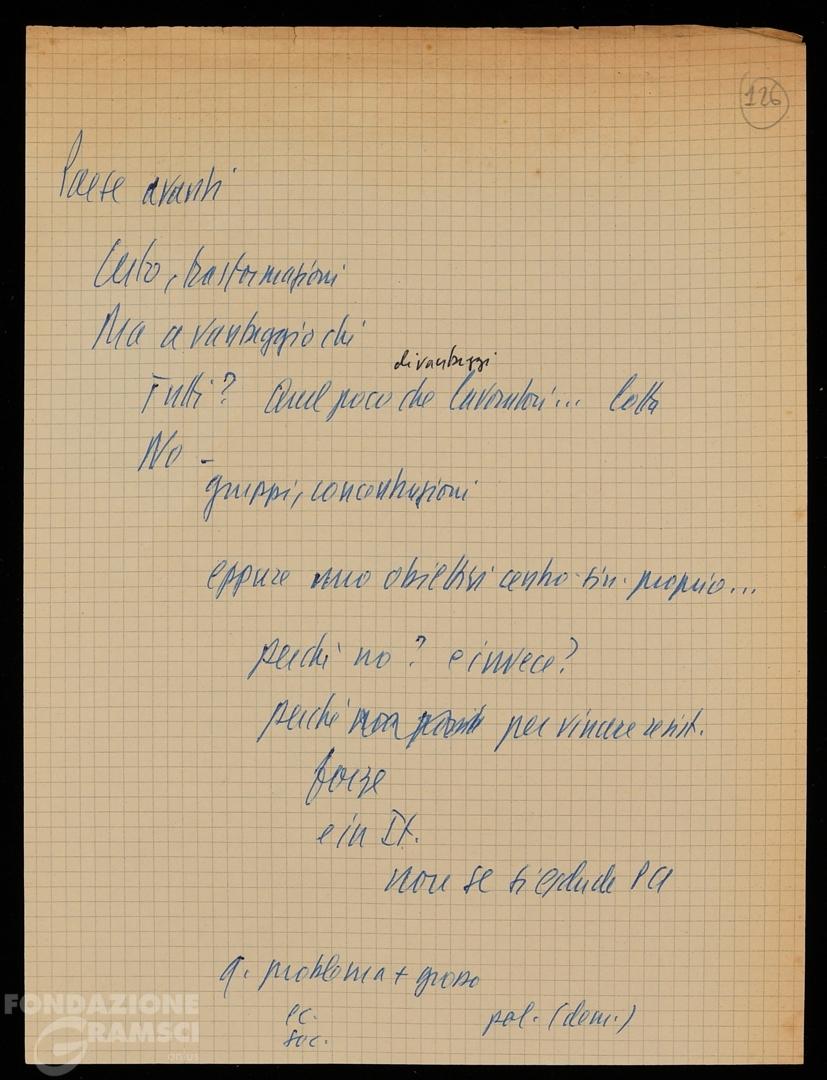 126
Paese avanti
Certo, trasformazioni
Ma a vantaggio chi
di vantaggi
Tutti? Quel poco che lavoratori... lotta
No -
gruppi, concentrazioni
eppure obiettivi centro-sin. proprio...
perché no? e invece?
perché non per vincere resist.
forze
e in It.
non se si esclude PCI
q. problema + grosso
ec.
soc.
pol. (dem.)
FONDAZIONE
GRAMSCI
onlus